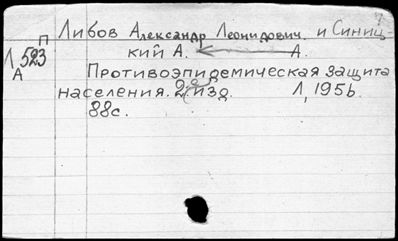 Либов Александр Леонидович. и Синиц
П
Л, 523
А
кий А. ← А.
Противоэпидемическая защита
населения. 2е изд. Л, 1956.
88с.